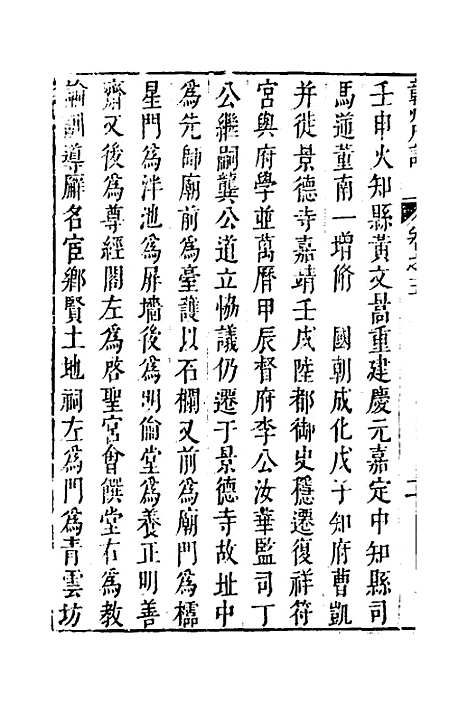 壬申火知縣黃文暠重建慶元嘉定中知縣司
馬遒董南一增脩　國朝成化戊子知府曹凱
并徙景德寺嘉靖壬戌陸都御史穩遷復祥符
宮與府學並萬曆甲辰督府李公汝華監司丁
公繼嗣龔公道立協議仍遷于景德寺故址中
為先師廟前為臺護以石欄又前為廟門為櫺
星門為泮池為屏墻後為明倫堂為養正明善
齋又後為尊經閣左為啓聖宮會饌堂右為教
諭訓導廨名宦鄉賢土地祠左為門為青雲坊